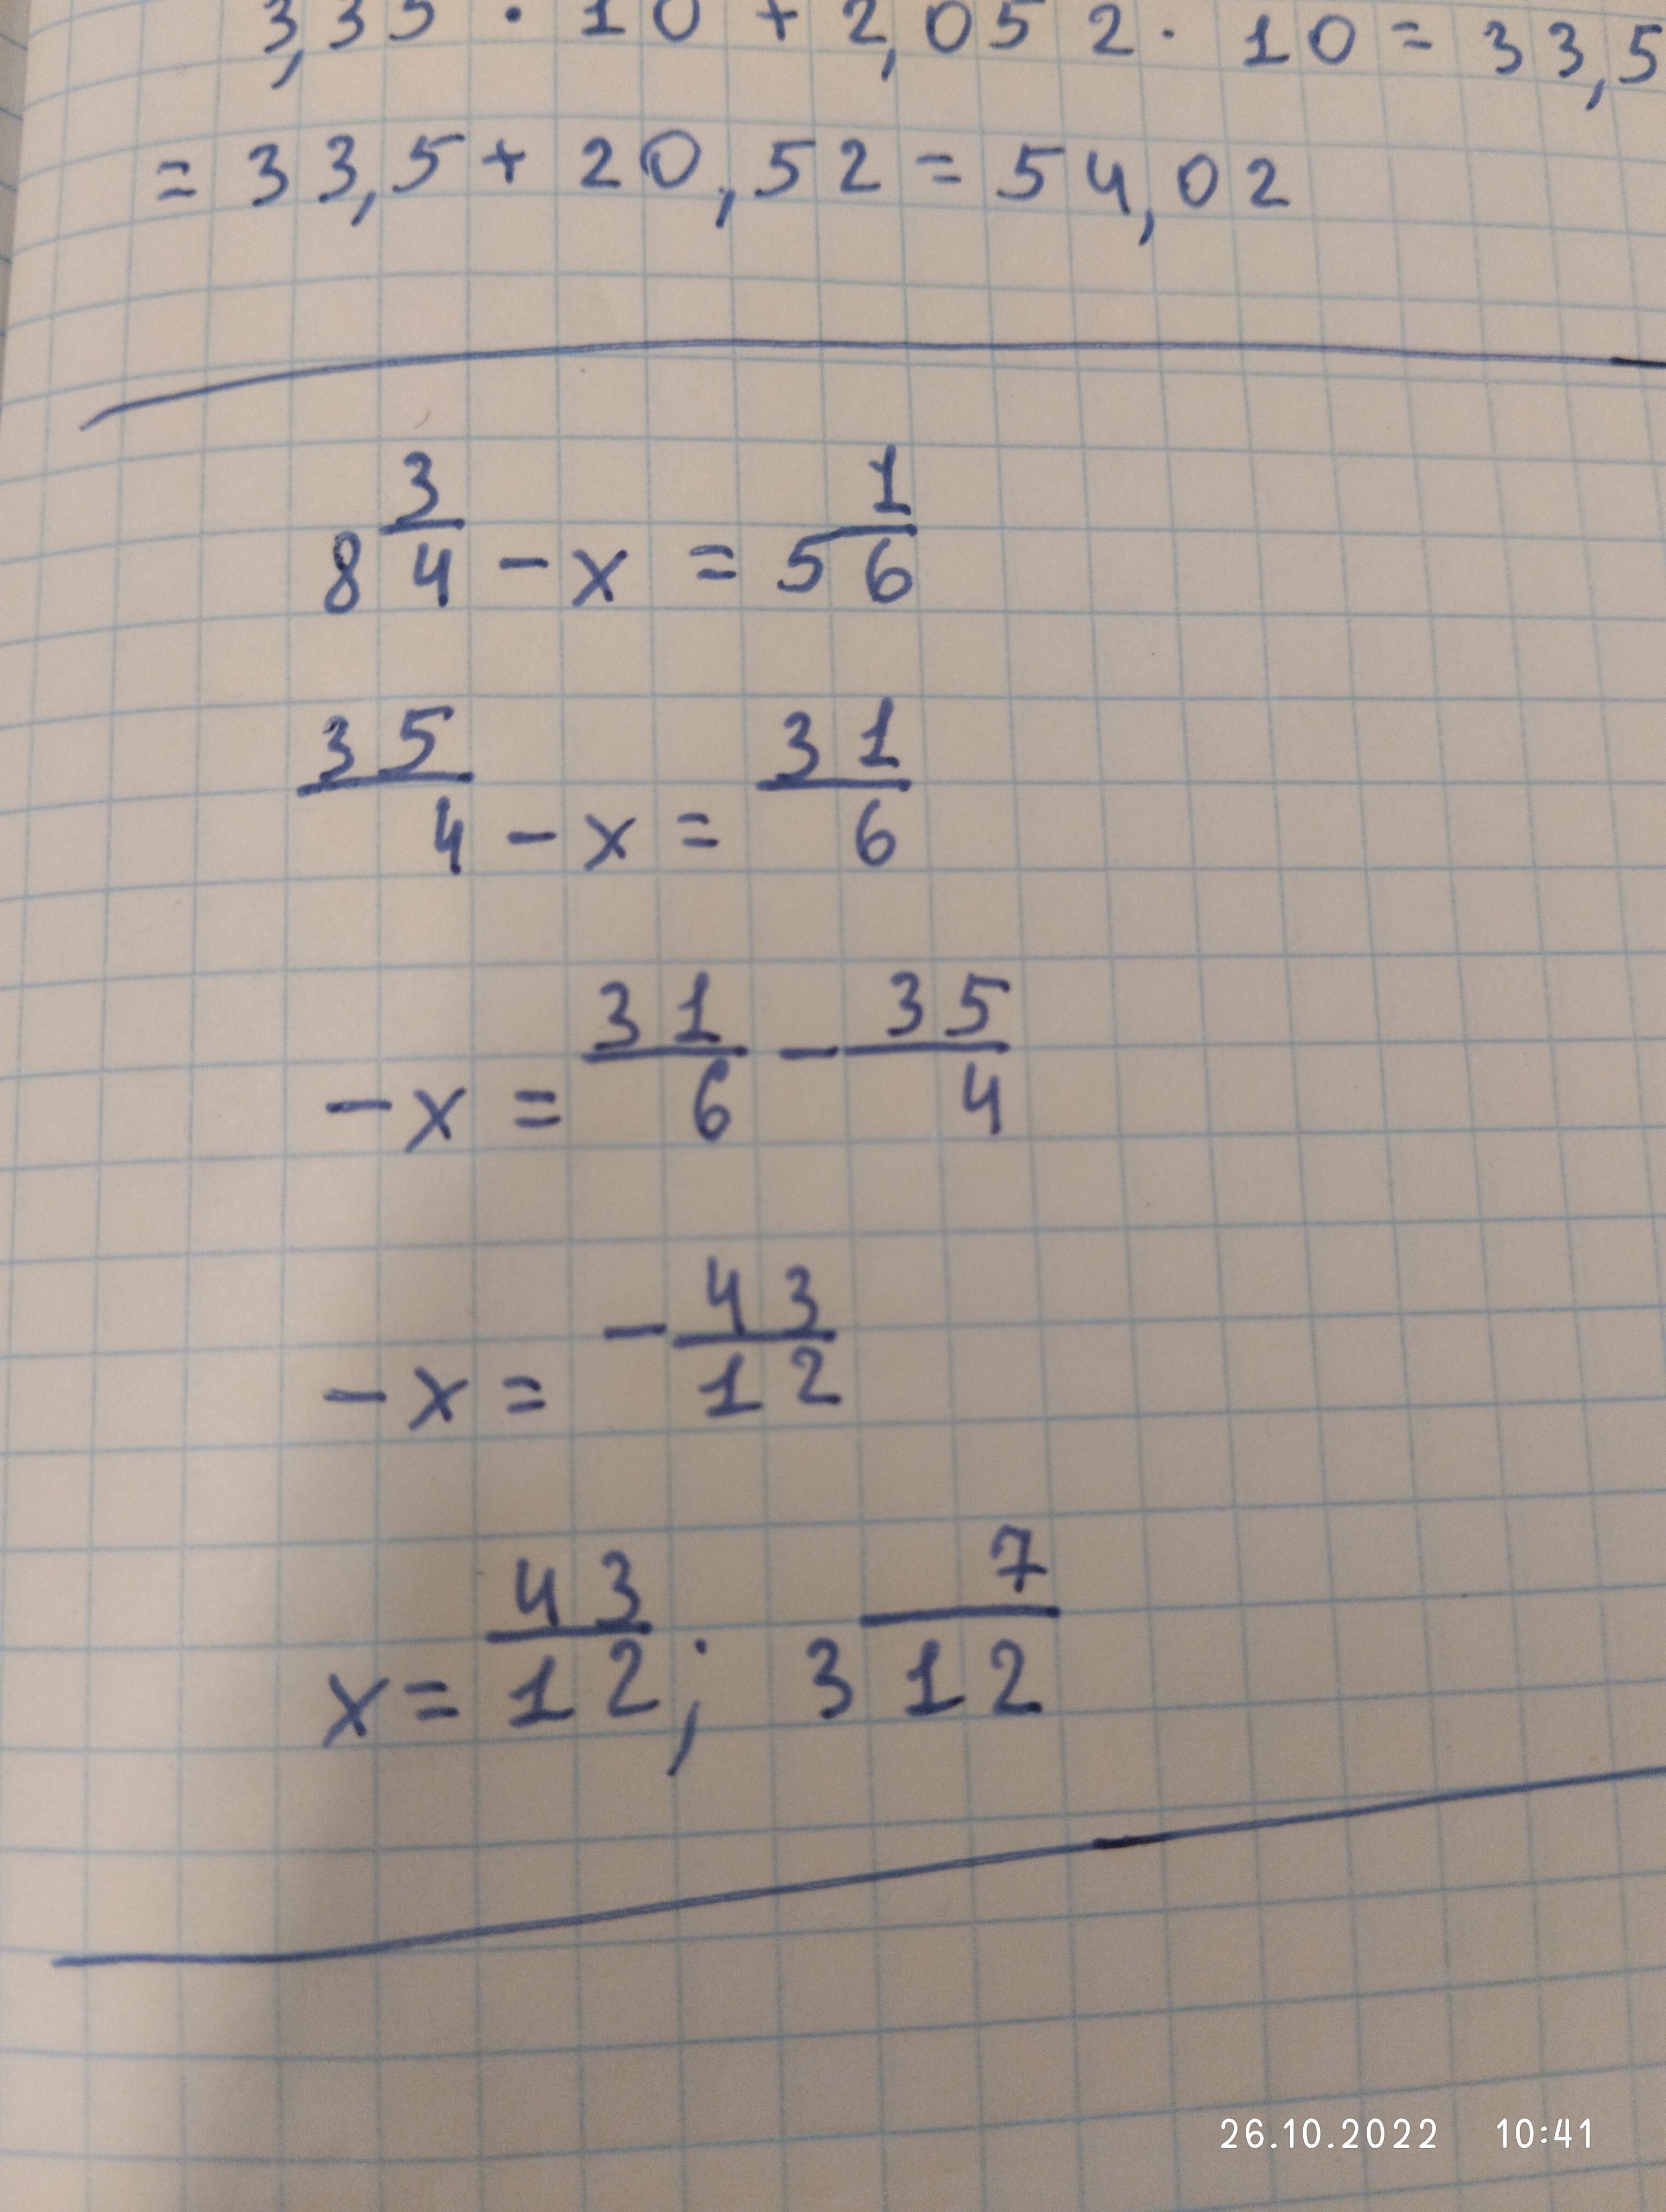 3,35 · 10 + 2,052 · 10 = 33,5
= 33,5 + 20,52 = 54,02
8 3/4 - x = 5 1/6
35/4 - x = 31/6
-x = 31/6 - 35/4
-x = - 43/12
x = 43/12; 3 7/12
26.10.2022 10:41